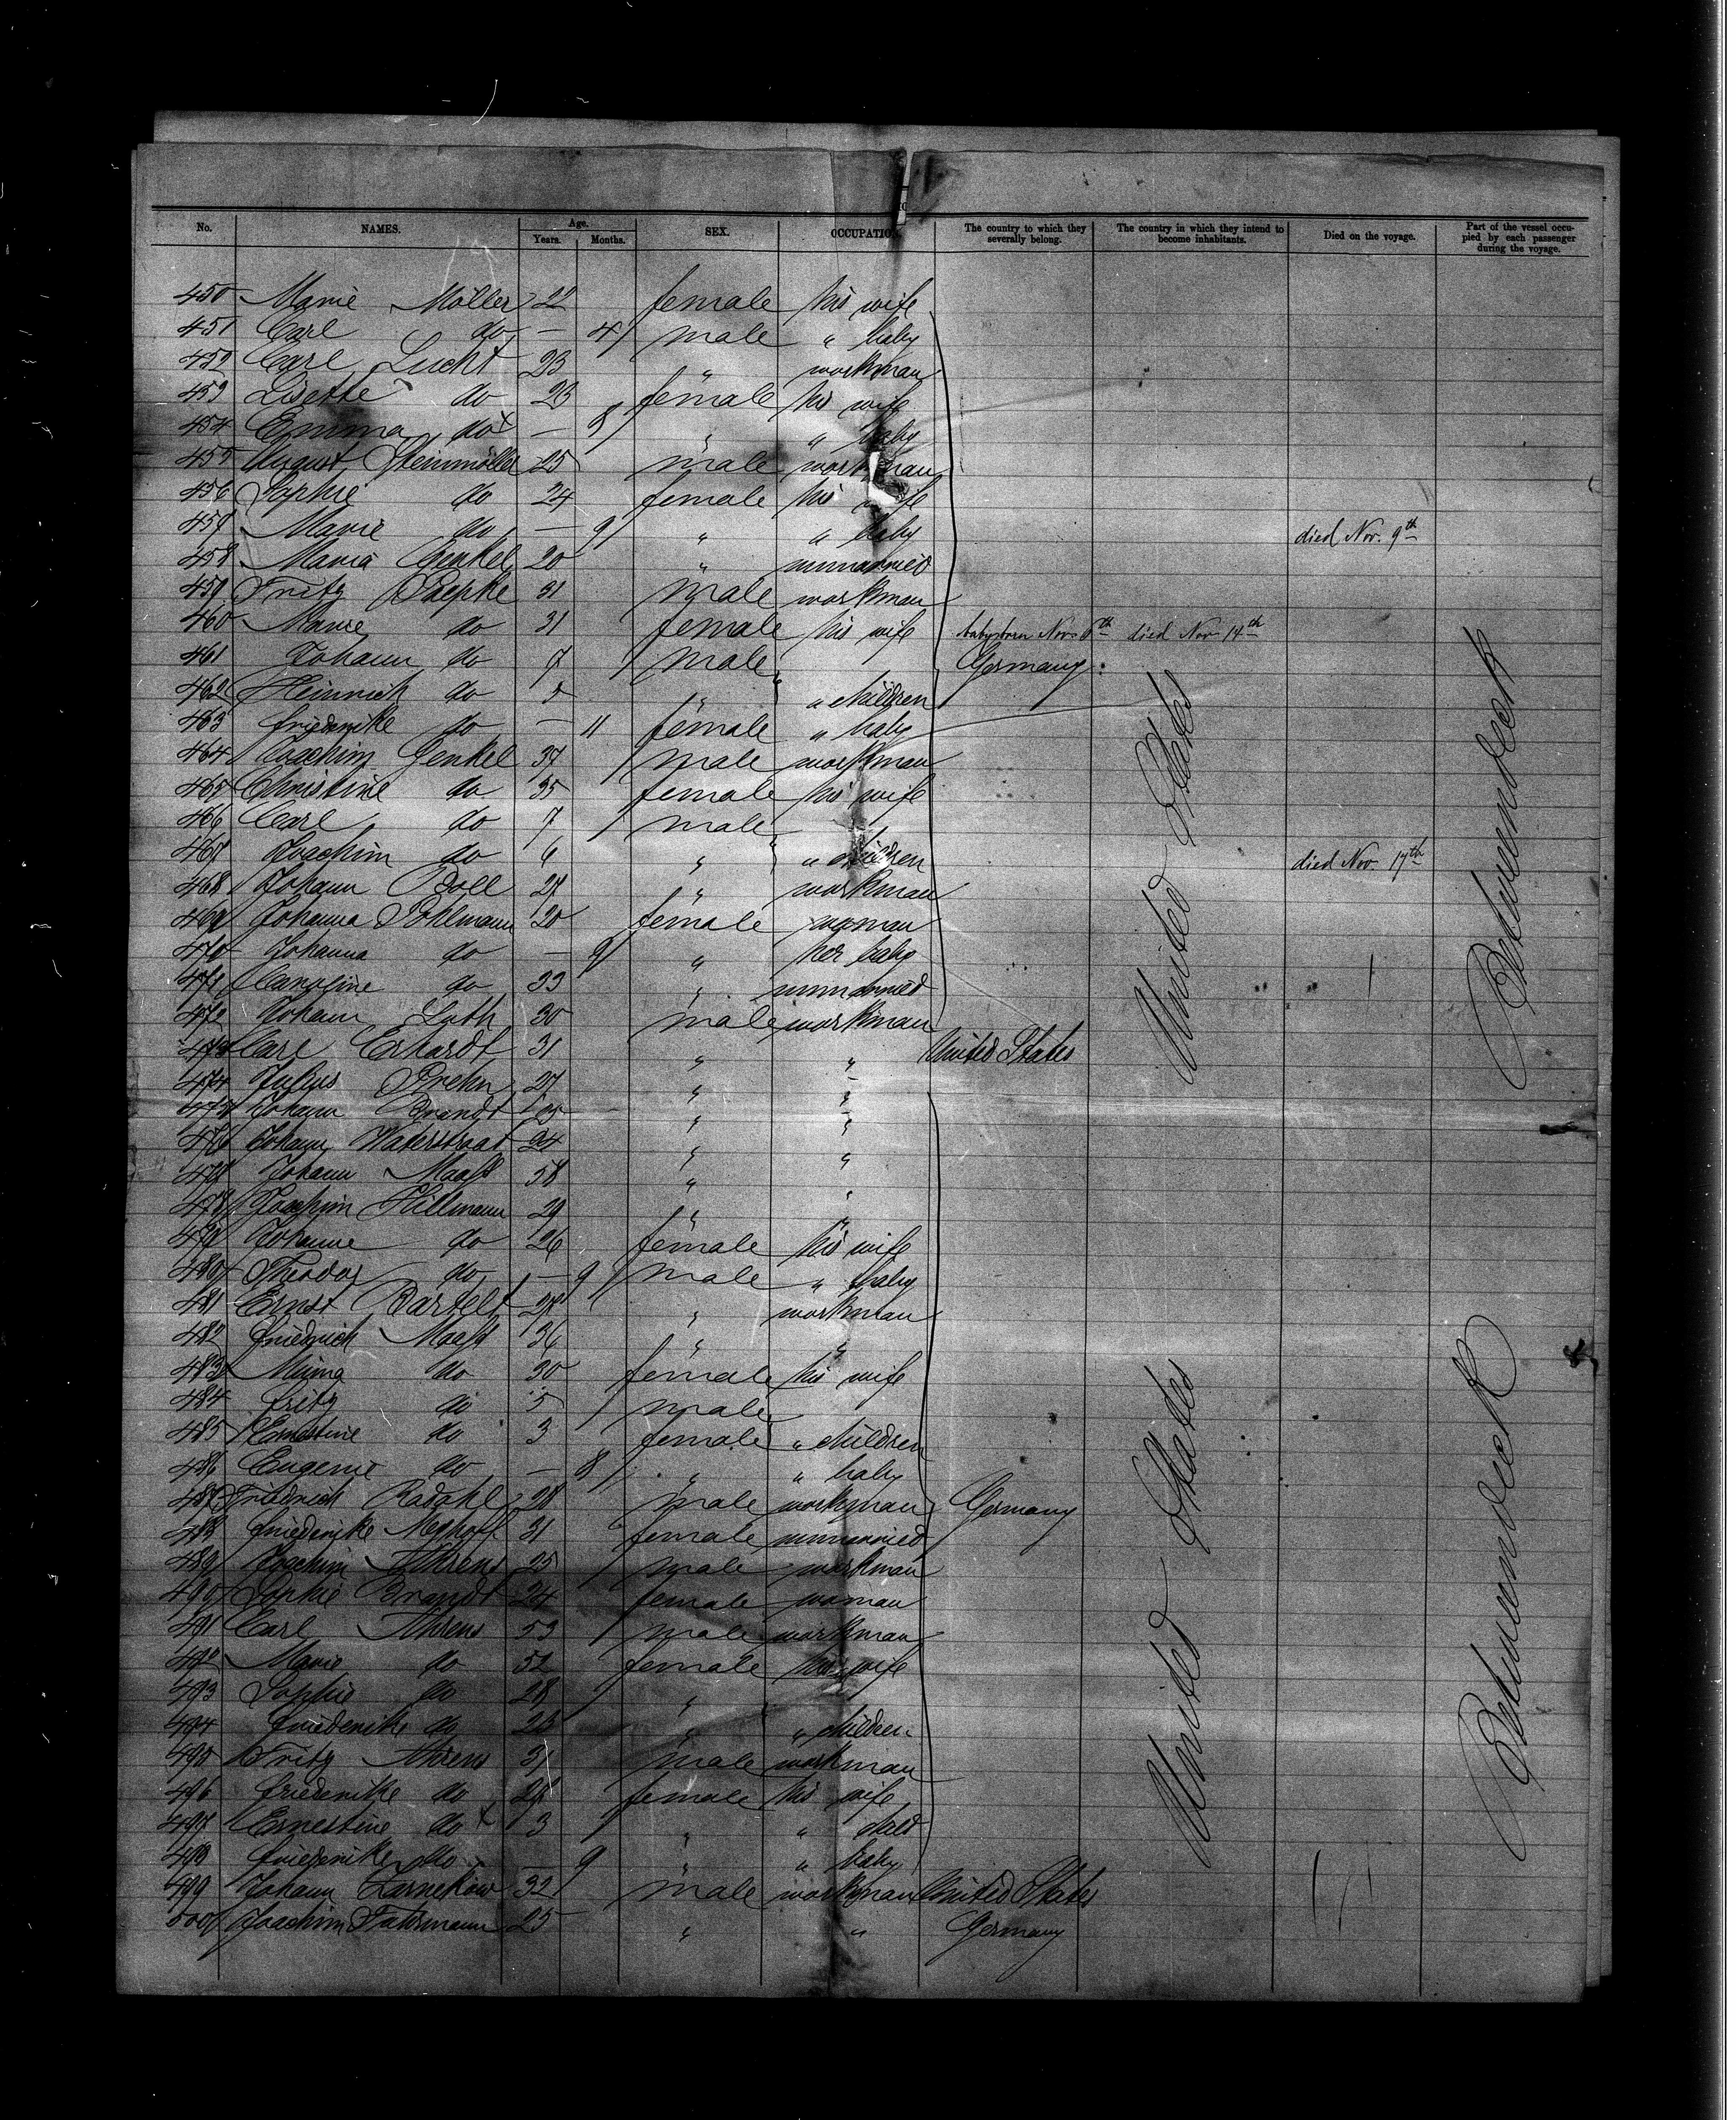 No. NAMES. Age. Years. Months. SEX. OCCUPATION The country to which they severally belong. The country in which they intend to become inhabitants. Died on the voyage. Part of the vessel occupied by each passenger during the voyage.
450 Marie Möller 22 female his wife
451 Carl do — 4 male " baby
452 Carl Lucht 23 " workman
453 Lisette do 23 female his wife
454 Emma do x — 8 " " baby
455 August Steinmöller 25 male workman
456 Sophie do 24 female his wife
457 Marie do — 9 " " baby died Nov. 9th
458 Maria Genkel 20 " unmarried
459 Fritz Paepke 31 male workman
460 Marie do 31 female his wife baby born Nov. 6th died Nov 14th
461 Johann do 7 male Germany
462 Heinrich do " " children
463 Friederike do — 11 female " baby
464 Joachim Genkel 37 male workman
465 Christine do 35 female his wife
466 Carl do 7 male
467 Joachim do 6 " " children died Nov. 17th
468 Johann Boll 27 " workman
469 Johanna Pohlmann 20 female woman
470 Johanna do — 9 " her baby
471 Caroline do 33 " unmarried
472 Johann Loth 30 male workman
473 Carl Erhardt 31 " " United States
474 Julius Prehn 27 " "
475 Johann Brandt " "
476 Johann Waterstraat 24 " "
477 Johann Maass 58 " "
478 Joachim Hillmann 29 " "
479 Johanne do 26 female his wife
480 Theodor do — 9 male " baby
481 Ernst Bartelt 27 " workman
482 Friedrich Maass 36 " "
483 Minna do 30 female his wife
484 Fritz do 5 male
485 Ernestine do 3 female " children
486 Eugenie do — 8 " " baby
487 Friedrich Radahl 28 male workman Germany
488 Friederike 31 female unmarried
489 Joachim Ahrens 25 male workman
490 Sophie Brandt 24 female woman
491 Carl Ahrens 53 male workman
492 Marie do 52 female his wife
493 Sophie do 28 "
494 Friederike do 23 " " children
495 Fritz Ahrens 31 male workman
496 Friederike do 28 female his wife
497 Ernestine do x 3 " " child
498 Friederike do — 9 " " baby
499 Johann Zarnekow 32 male workman United States
500 Joachim Fuhrmann 25 " " Germany
United States
Betweendeck
United States
Betweendeck